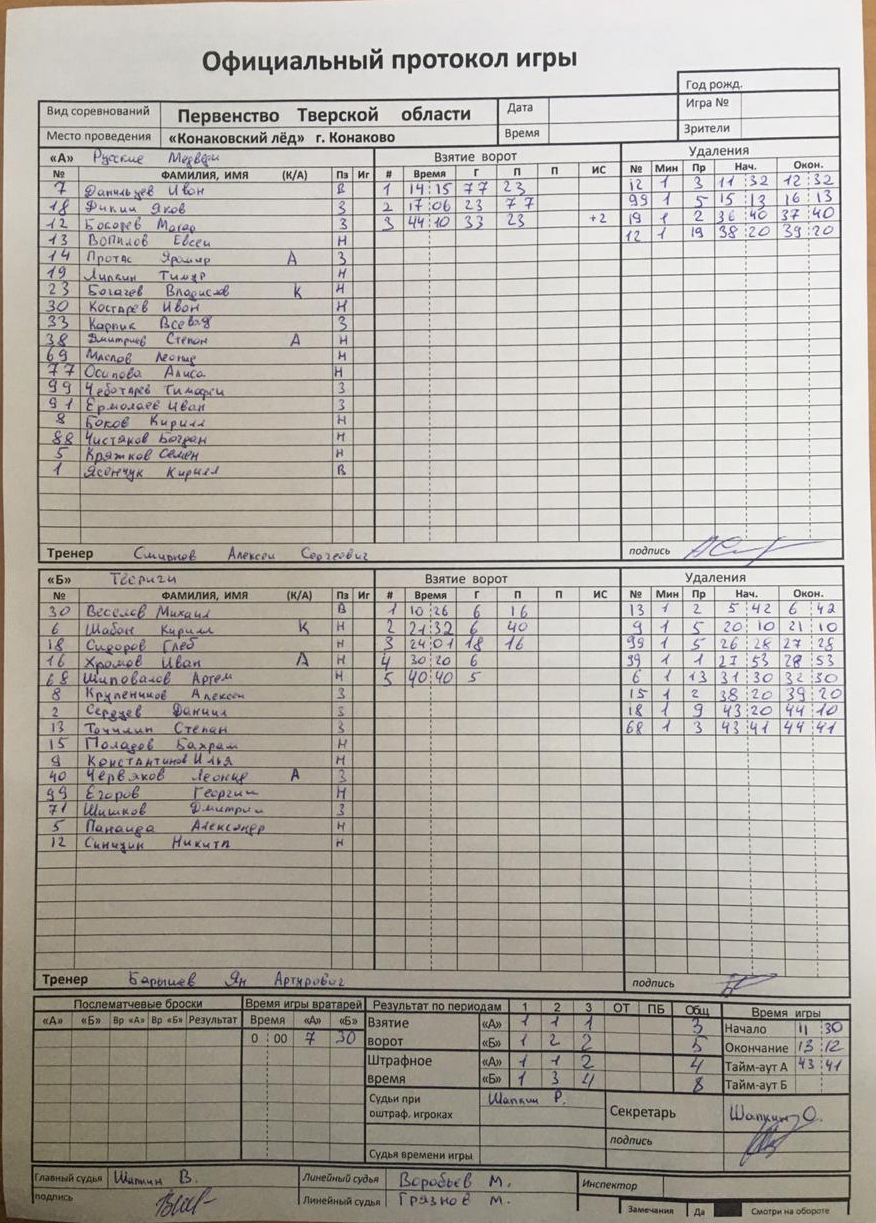 Официальный протокол игры
Год рожд.
Вид соревнований Первенство Тверской области Дата Игра №
Место проведения «Конаковский лёд» г. Конаково Время Зрители
«А» Русские Медведи Взятие ворот Удаления
№ ФАМИЛИЯ, ИМЯ (К/А) Пз Иг # Время Г П П ИС № Мин Пр Нач. Окон.
7 Данильцев Иван В 1 14:15 77 23 12 1 3 11:32 12:32
18 Дикий Яков З 2 17:06 23 77 99 1 5 15:13 16:13
12 Макар З 3 44:10 33 23 +2 19 1 2 36:40 37:40
13 Вопилов Евсей Н 12 1 19 38:20 39:20
14 Протас Яромир А З
19 Липкин Тимур Н
23 Богачев Владислав К Н
30 Костарев Иван Н
33 Карпик Всевод З
38 Дмитриев Степан А Н
69 Маслов Леонид Н
77 Осипова Алиса Н
99 Чеботарев Тимофей З
91 Ермолаев Иван З
8 Боков Кирилл Н
88 Чистяков Богдан Н
5 Кряжков Семен Н
1 Ясенчук Кирилл В
Тренер Смирнов Алексей Сергеевич подпись
«Б» Тверичи Взятие ворот Удаления
№ ФАМИЛИЯ, ИМЯ (К/А) Пз Иг # Время Г П П ИС № Мин Пр Нач. Окон.
30 Веселов Михаил В 1 10:26 6 16 13 1 2 5:42 6:42
6 Шабан Кирилл К Н 2 21:32 6 40 9 1 5 20:10 21:10
18 Сидоров Глеб Н 3 24:01 18 16 99 1 5 26:28 27:28
16 Хромов Иван А Н 4 30:20 6 99 1 1 27:53 28:53
68 Шиповалов Артем Н 5 40:40 5 6 1 13 31:30 32:30
8 Крупеников Алексей З 15 1 2 38:20 39:20
2 Даниил З 18 1 9 43:20 44:10
13 Точилин Степан З 68 1 3 43:41 44:41
15 Поладов Бахрам Н
9 Константинов Илья Н
40 Червяков Леонид А З
99 Егоров Георгий Н
71 Шишков Дмитрий З
5 Панаида Александр Н
12 Синицин Никита Н
Тренер Барышев Ян Артурович подпись
Послематчевые броски Время игры вратарей Результат по периодам 1 2 3 ОТ ПБ Общ Время игры
«А» «Б» Вр «А» Вр «Б» Результат Время «А» «Б» Взятие ворот «А» 1 1 1 3 Начало 11:30
0:00 7 30 «Б» 1 2 2 5 Окончание 13:12
Штрафное время «А» 1 1 2 4 Тайм-аут А 43:41
«Б» 1 3 4 8 Тайм-аут Б
Судьи при оштраф. игроках Шапкин Р. Секретарь Шапкин О.
подпись
Судья времени игры
Главный судья Шапкин В. Линейный судья Воробьев М. Инспектор
подпись Линейный судья Грязнов М. Замечания Да Смотри на обороте